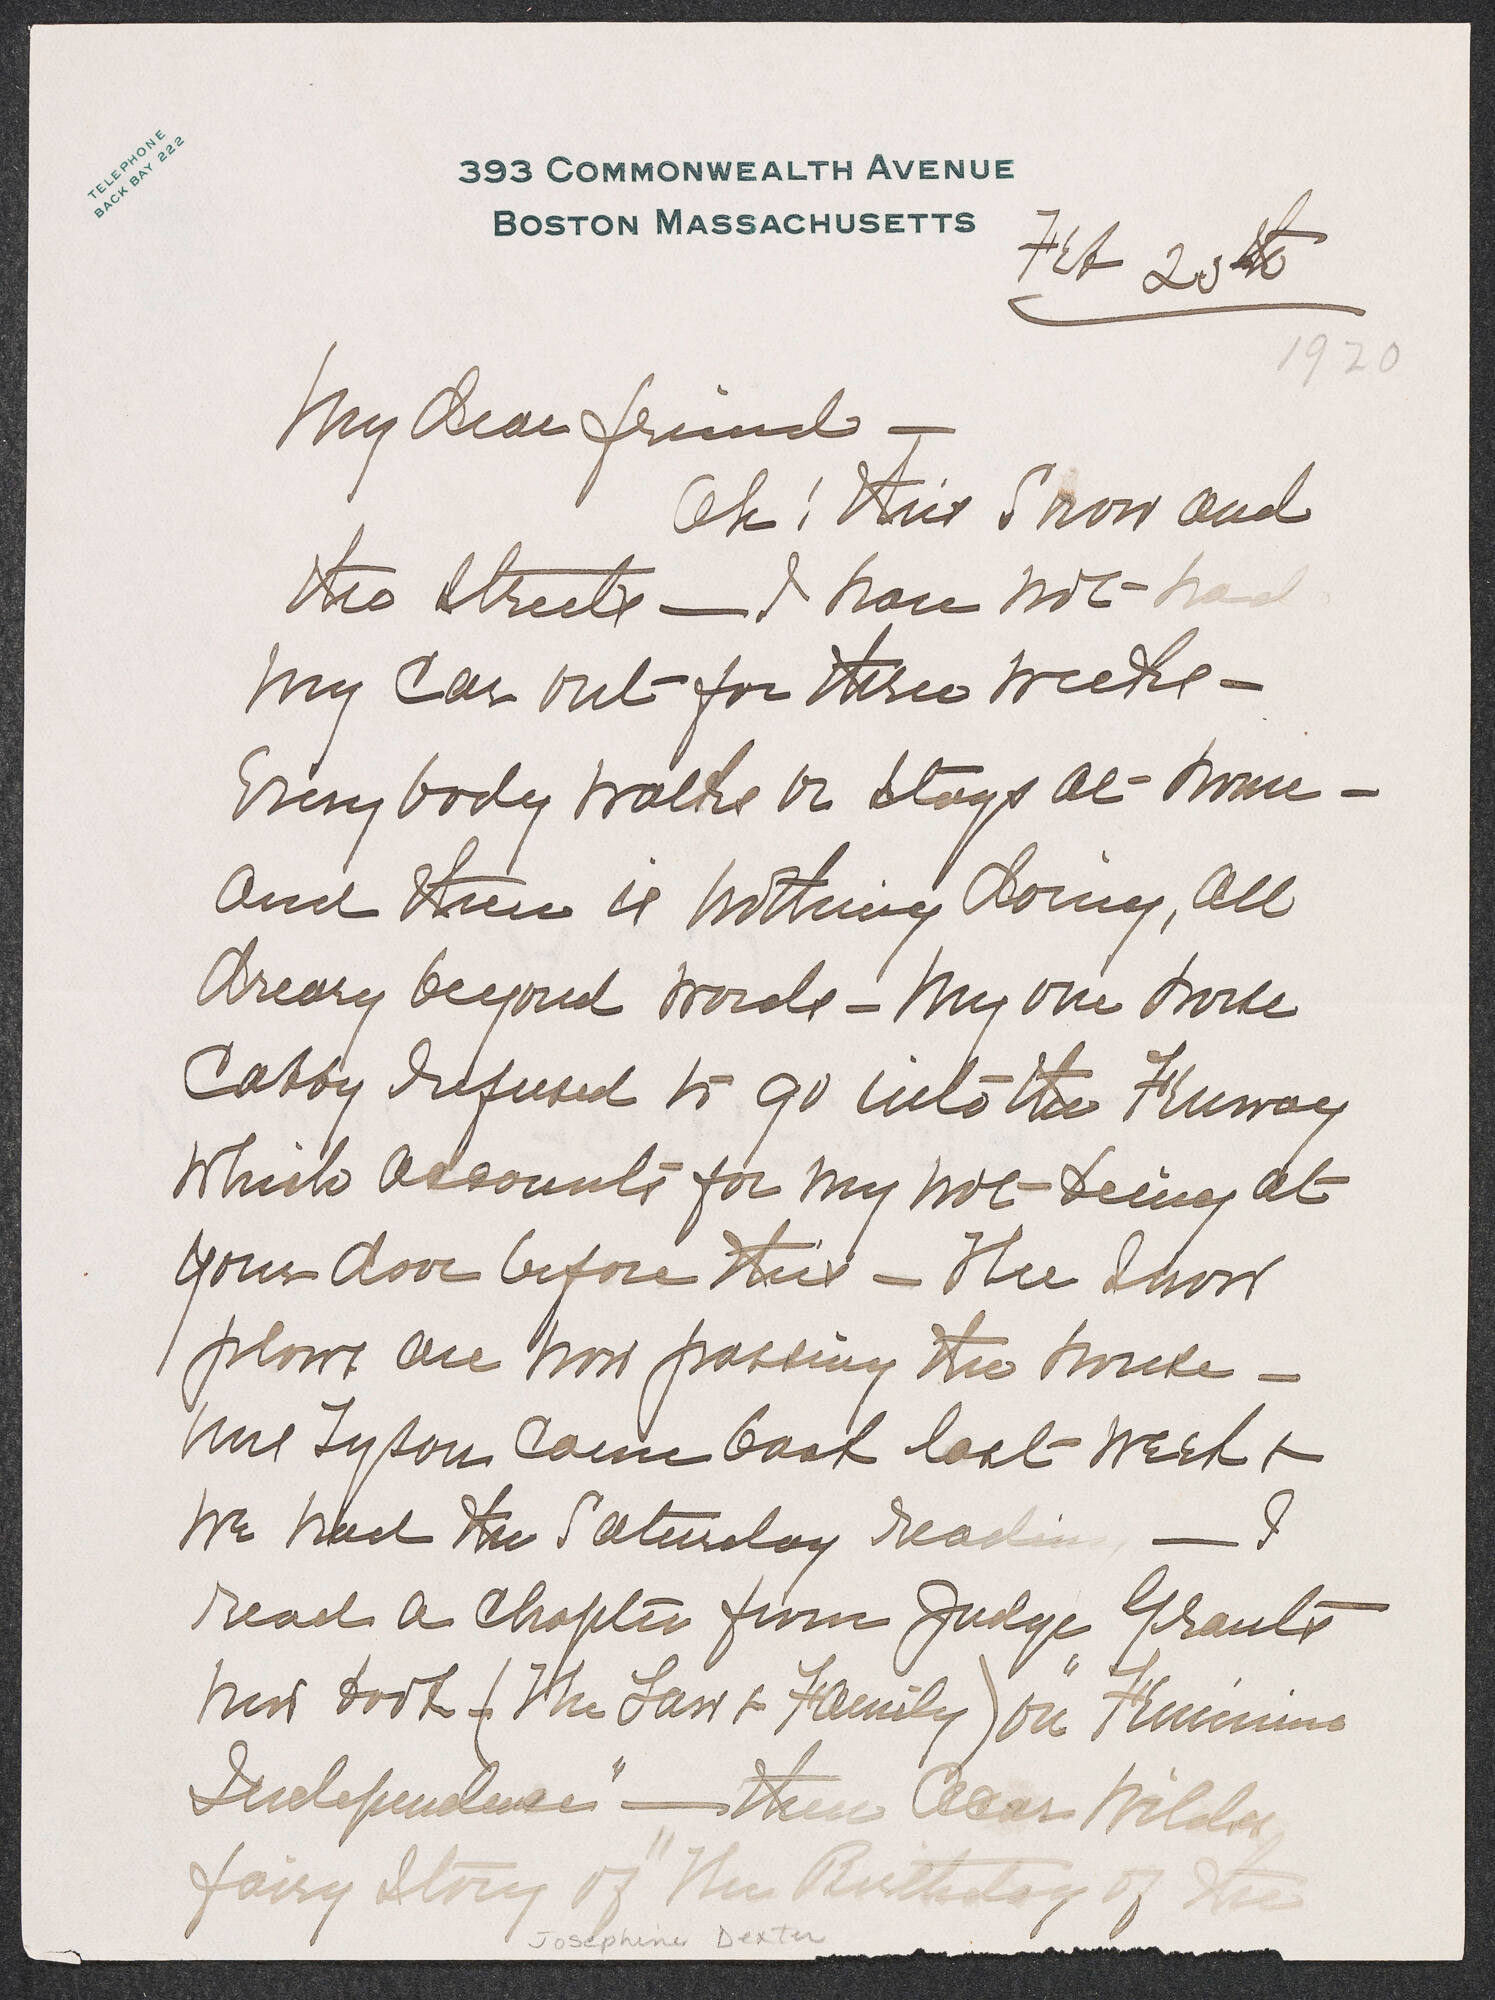 TELEPHONE
BACK BAY 222
393 COMMONWEALTH AVENUE
BOSTON MASSACHUSETTS
Feb 25th
1920
My dear friend —
Oh! this Snow and
the streets — I have not had
my car out for three weeks –
Every body walks or stays at home –
and there is nothing doing, all
dreary beyond words – My one horse
Cabby refused to go into the Fenway
which accounts for my not being at
your door before this – The snow
plows are now passing the house –
Mrs Tyson came back last week &
we had the Saturday reading — I
read a chapter from Judge Grants
new book – (The Law & Family) on "Feminine
Independence" — then Oscar Wildes
fairy story of "The Birthday of the
Josephine Dexter